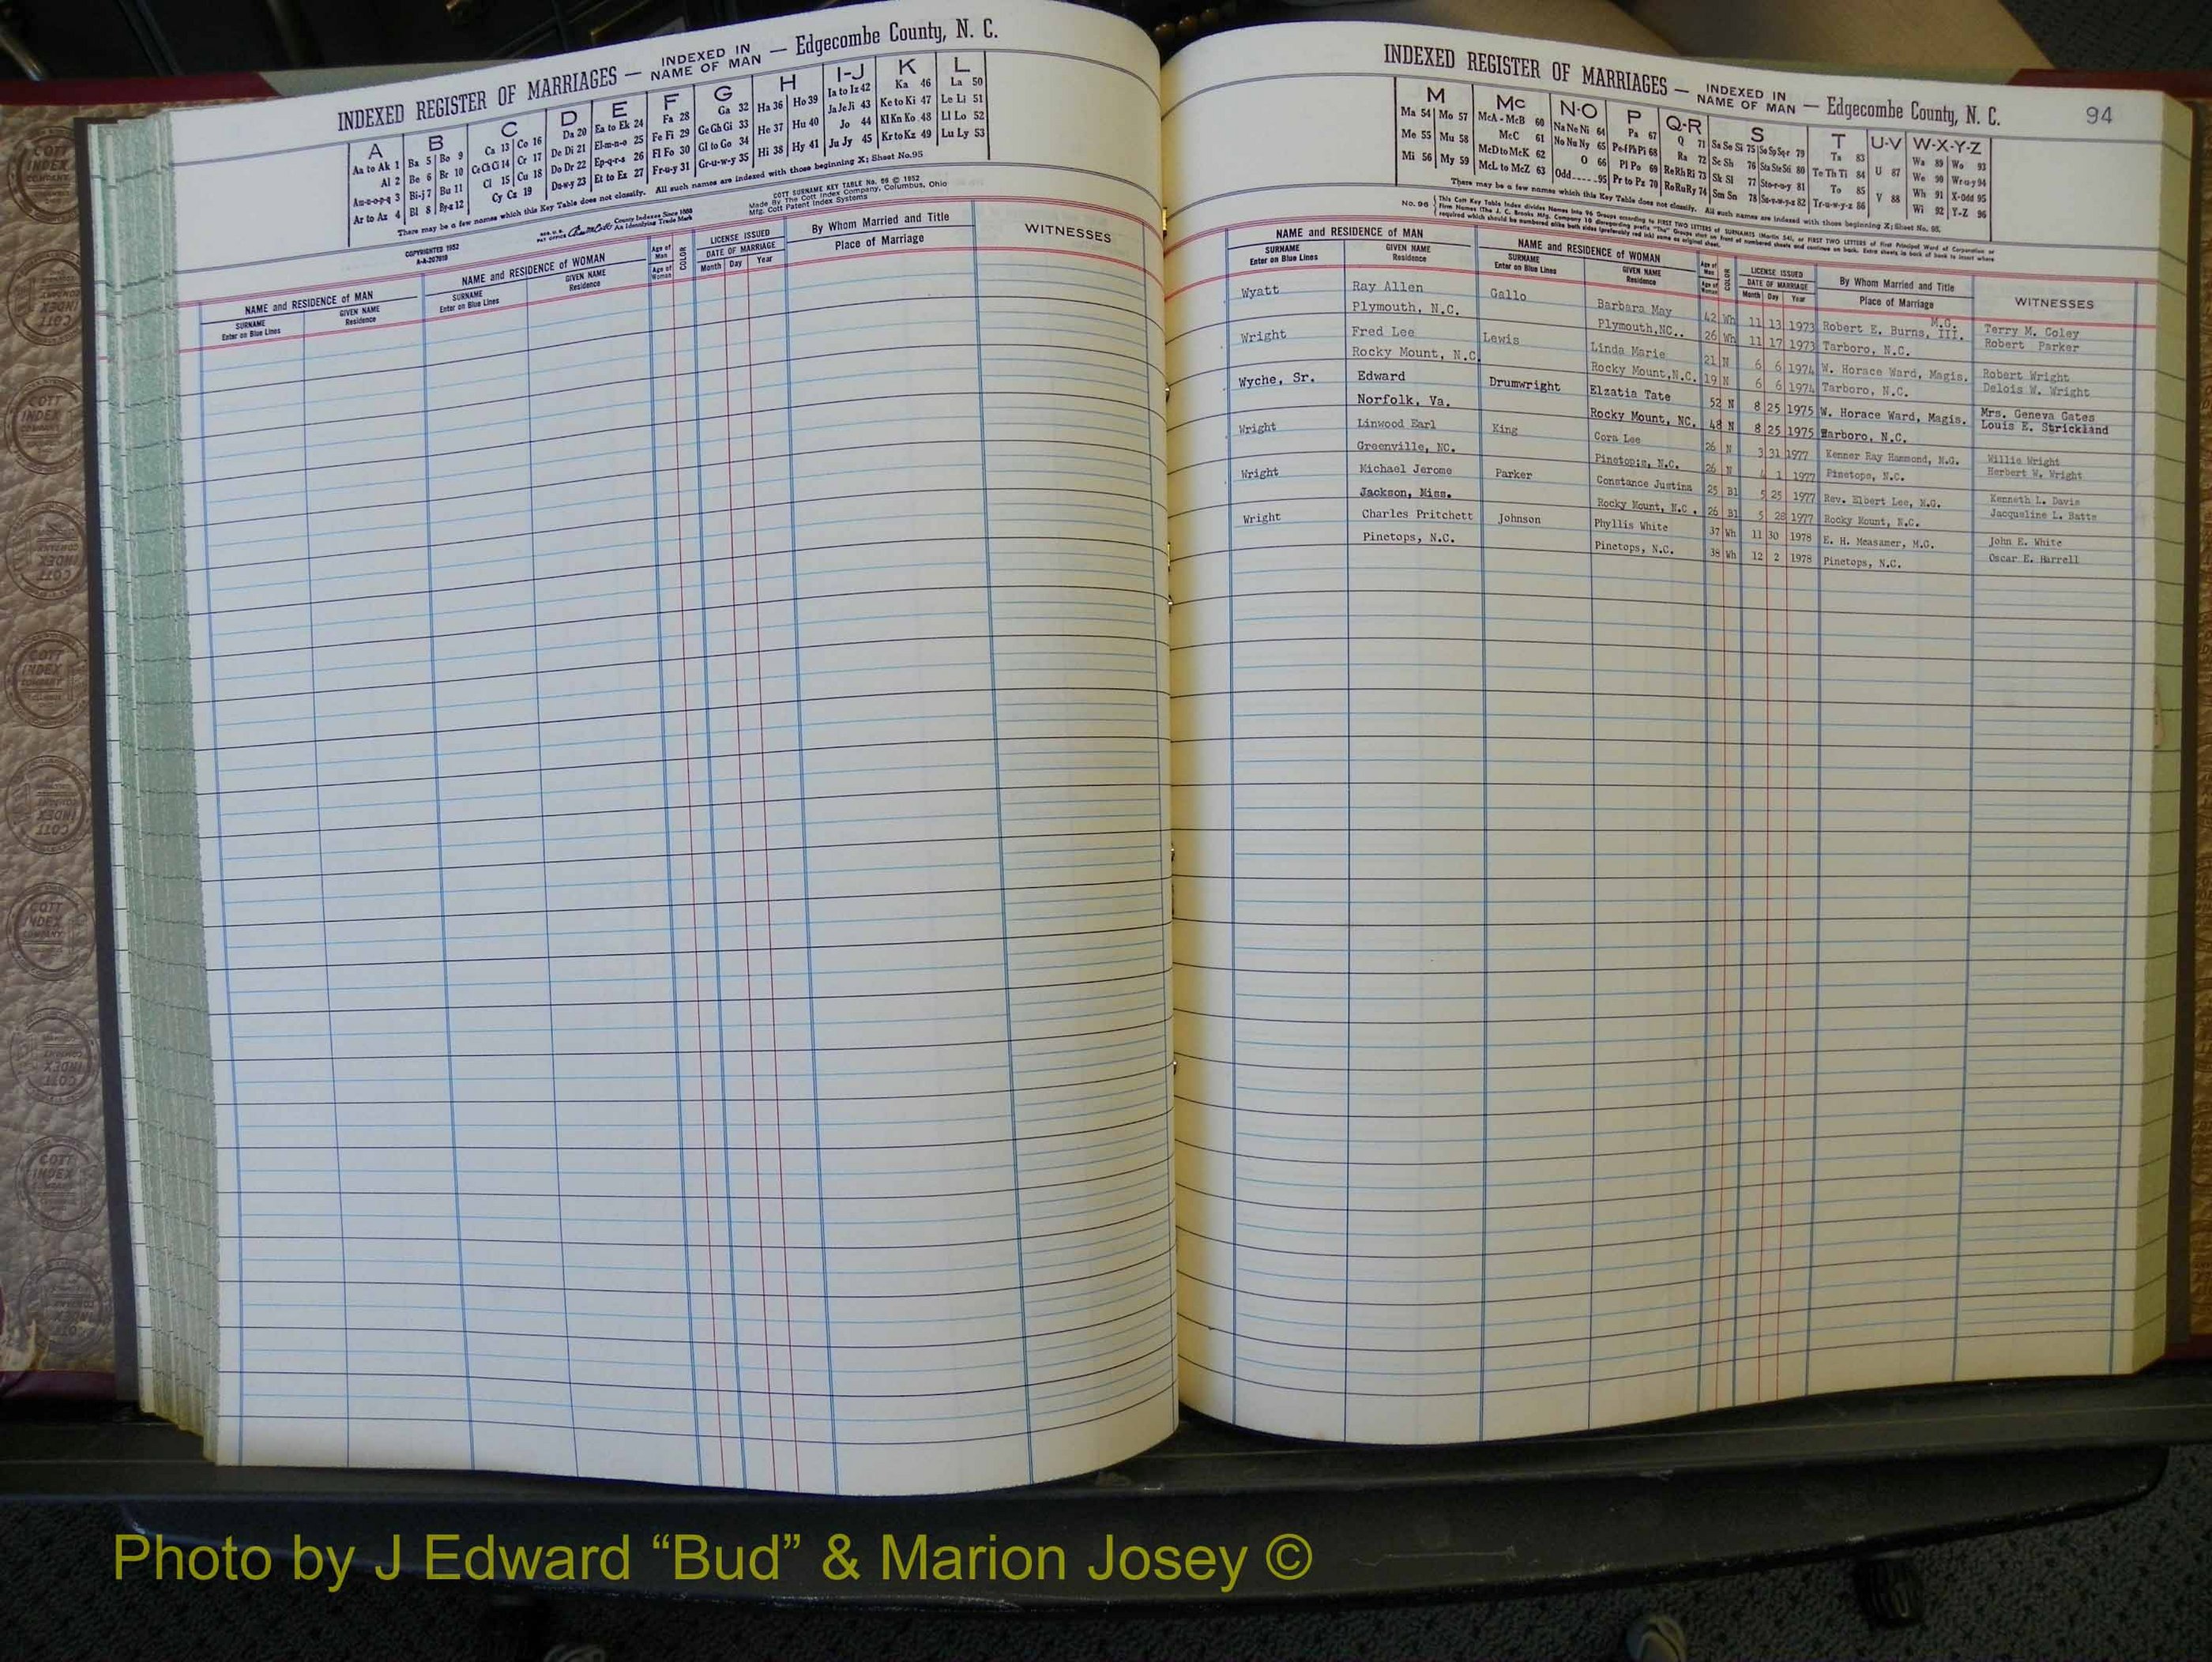 INDEXED REGISTER OF MARRIAGES — INDEXED IN NAME OF MAN — Edgecombe County, N. C.
A B C D E F G H I-J K L
Aa to Ak 1 Ba 5 Bo 9 Ca 13 Co 16 Da 20 Ea to Ek 24 Fa 28 Ga 32 Ha 36 Ho 39 Ia to Iz 42 Ka 46 La 50
Al 2 Be 6 Br 10 Ce Ch Ci 14 Cr 17 De Di 21 El-m-n-o 25 Fe Fi 29 Ge Gh Gi 33 He 37 Hu 40 Ja Je Ji 43 Ke to Ki 47 Le Li 51
Am-n-o-p-q 3 Bi-j 7 Bu 11 Cl 15 Cu 18 Do Dr 22 Ep-q-r-s 26 Fl Fo 30 Gl to Go 34 Hi 38 Hy 41 Jo 44 Kl Kn Ko 48 Ll Lo 52
Ar to Az 4 Bl 8 By-z 12 Cy Cz 19 Du-w-y 23 Et to Ez 27 Fr-u-y 31 Gr-u-w-y 35 Ju Jy 45 Kr to Kz 49 Lu Ly 53
There may be a few names which this Key Table does not classify. All such names are indexed with those beginning X; Sheet No. 95
COPYRIGHTED 1952
A-A-207019
County Indexes Since 1888
An Identifying Trade Mark
COTT SURNAME KEY TABLE No. 96 © 1952
Made By The Cott Index Company, Columbus, Ohio
Mfg. Cott Patent Index Systems
NAME and RESIDENCE of MAN
SURNAME
Enter on Blue Lines
GIVEN NAME
Residence
NAME and RESIDENCE of WOMAN
SURNAME
Enter on Blue Lines
GIVEN NAME
Residence
Age of Man
Age of Woman
COLOR
LICENSE ISSUED
DATE OF MARRIAGE
Month Day Year
By Whom Married and Title
Place of Marriage
WITNESSES
INDEXED REGISTER OF MARRIAGES — INDEXED IN NAME OF MAN — Edgecombe County, N. C.
94
M Mc N-O P Q-R S T U-V W-X-Y-Z
Ma 54 Mo 57 McA - McB 60 Na Ne Ni 64 Pa 67 Q 71 Sa Se Si 75 So Sp Sq-r 79 Ta 83 U 87 Wa 89 Wo 93
Me 55 Mu 58 McC 61 No Nu Ny 65 Pe-f Ph Pi 68 Ra 72 Sc Sh 76 Sta Ste Sti 80 Te Th Ti 84 V 88 We 90 Wr-u-y 94
Mi 56 My 59 McD to McK 62 O 66 Pl Po 69 Re Rh Ri 73 Sk Sl 77 Sto-r-u-y 81 To 85 Wh 91 X-Odd 95
McL to McZ 63 Odd 95 Pr to Pz 70 Ro Ru Ry 74 Sm Sn 78 Su-v-w-y-z 82 Tr-u-w-y-z 86 Wi 92 Y-Z 96
There may be a few names which this Key Table does not classify. All such names are indexed with those beginning X; Sheet No. 95.
NAME and RESIDENCE of MAN
SURNAME
Enter on Blue Lines
GIVEN NAME
Residence
NAME and RESIDENCE of WOMAN
SURNAME
Enter on Blue Lines
GIVEN NAME
Residence
Age of Man
Age of Woman
COLOR
LICENSE ISSUED
DATE OF MARRIAGE
Month Day Year
By Whom Married and Title
Place of Marriage
WITNESSES
Wyatt Ray Allen Gallo Barbara May 42 Wh 11 13 1973 Robert E. Burns, III. M.G. Terry M. Coley
Plymouth, N.C. Plymouth,NC.. 26 Wh 11 17 1973 Tarboro, N.C. Robert Parker
Wright Fred Lee Lewis Linda Marie 21 N 6 6 1974 W. Horace Ward, Magis. Robert Wright
Rocky Mount, N.C Rocky Mount,N.C. 19 N 6 6 1974 Tarboro, N.C. Delois W. Wright
Wyche, Sr. Edward Drumwright Elzatia Tate 52 N 8 25 1975 W. Horace Ward, Magis. Mrs. Geneva Gates
Norfolk, Va. Rocky Mount, NC. 48 N 8 25 1975 Tarboro, N.C. Louis E. Strickland
Wright Linwood Earl King Cora Lee 26 N 3 31 1977 Kenner Ray Hammond, M.G. Willie Wright
Greenville, NC. Pinetops, N.C. 26 N 4 1 1977 Pinetops, N.C. Herbert W. Wright
Wright Michael Jerome Parker Constance Justina 25 Bl 5 25 1977 Rev. Elbert Lee, M.G. Kenneth L. Davis
Jackson, Miss. Rocky Mount, N.C. 26 Bl 5 28 1977 Rocky Mount, N.C. Jacqueline L. Batts
Wright Charles Pritchett Johnson Phyllis White 37 Wh 11 30 1978 E. H. Measamer, M.G. John E. White
Pinetops, N.C. Pinetops, N.C. 38 Wh 12 2 1978 Pinetops, N.C. Oscar E. Harrell
Photo by J Edward “Bud” & Marion Josey ©